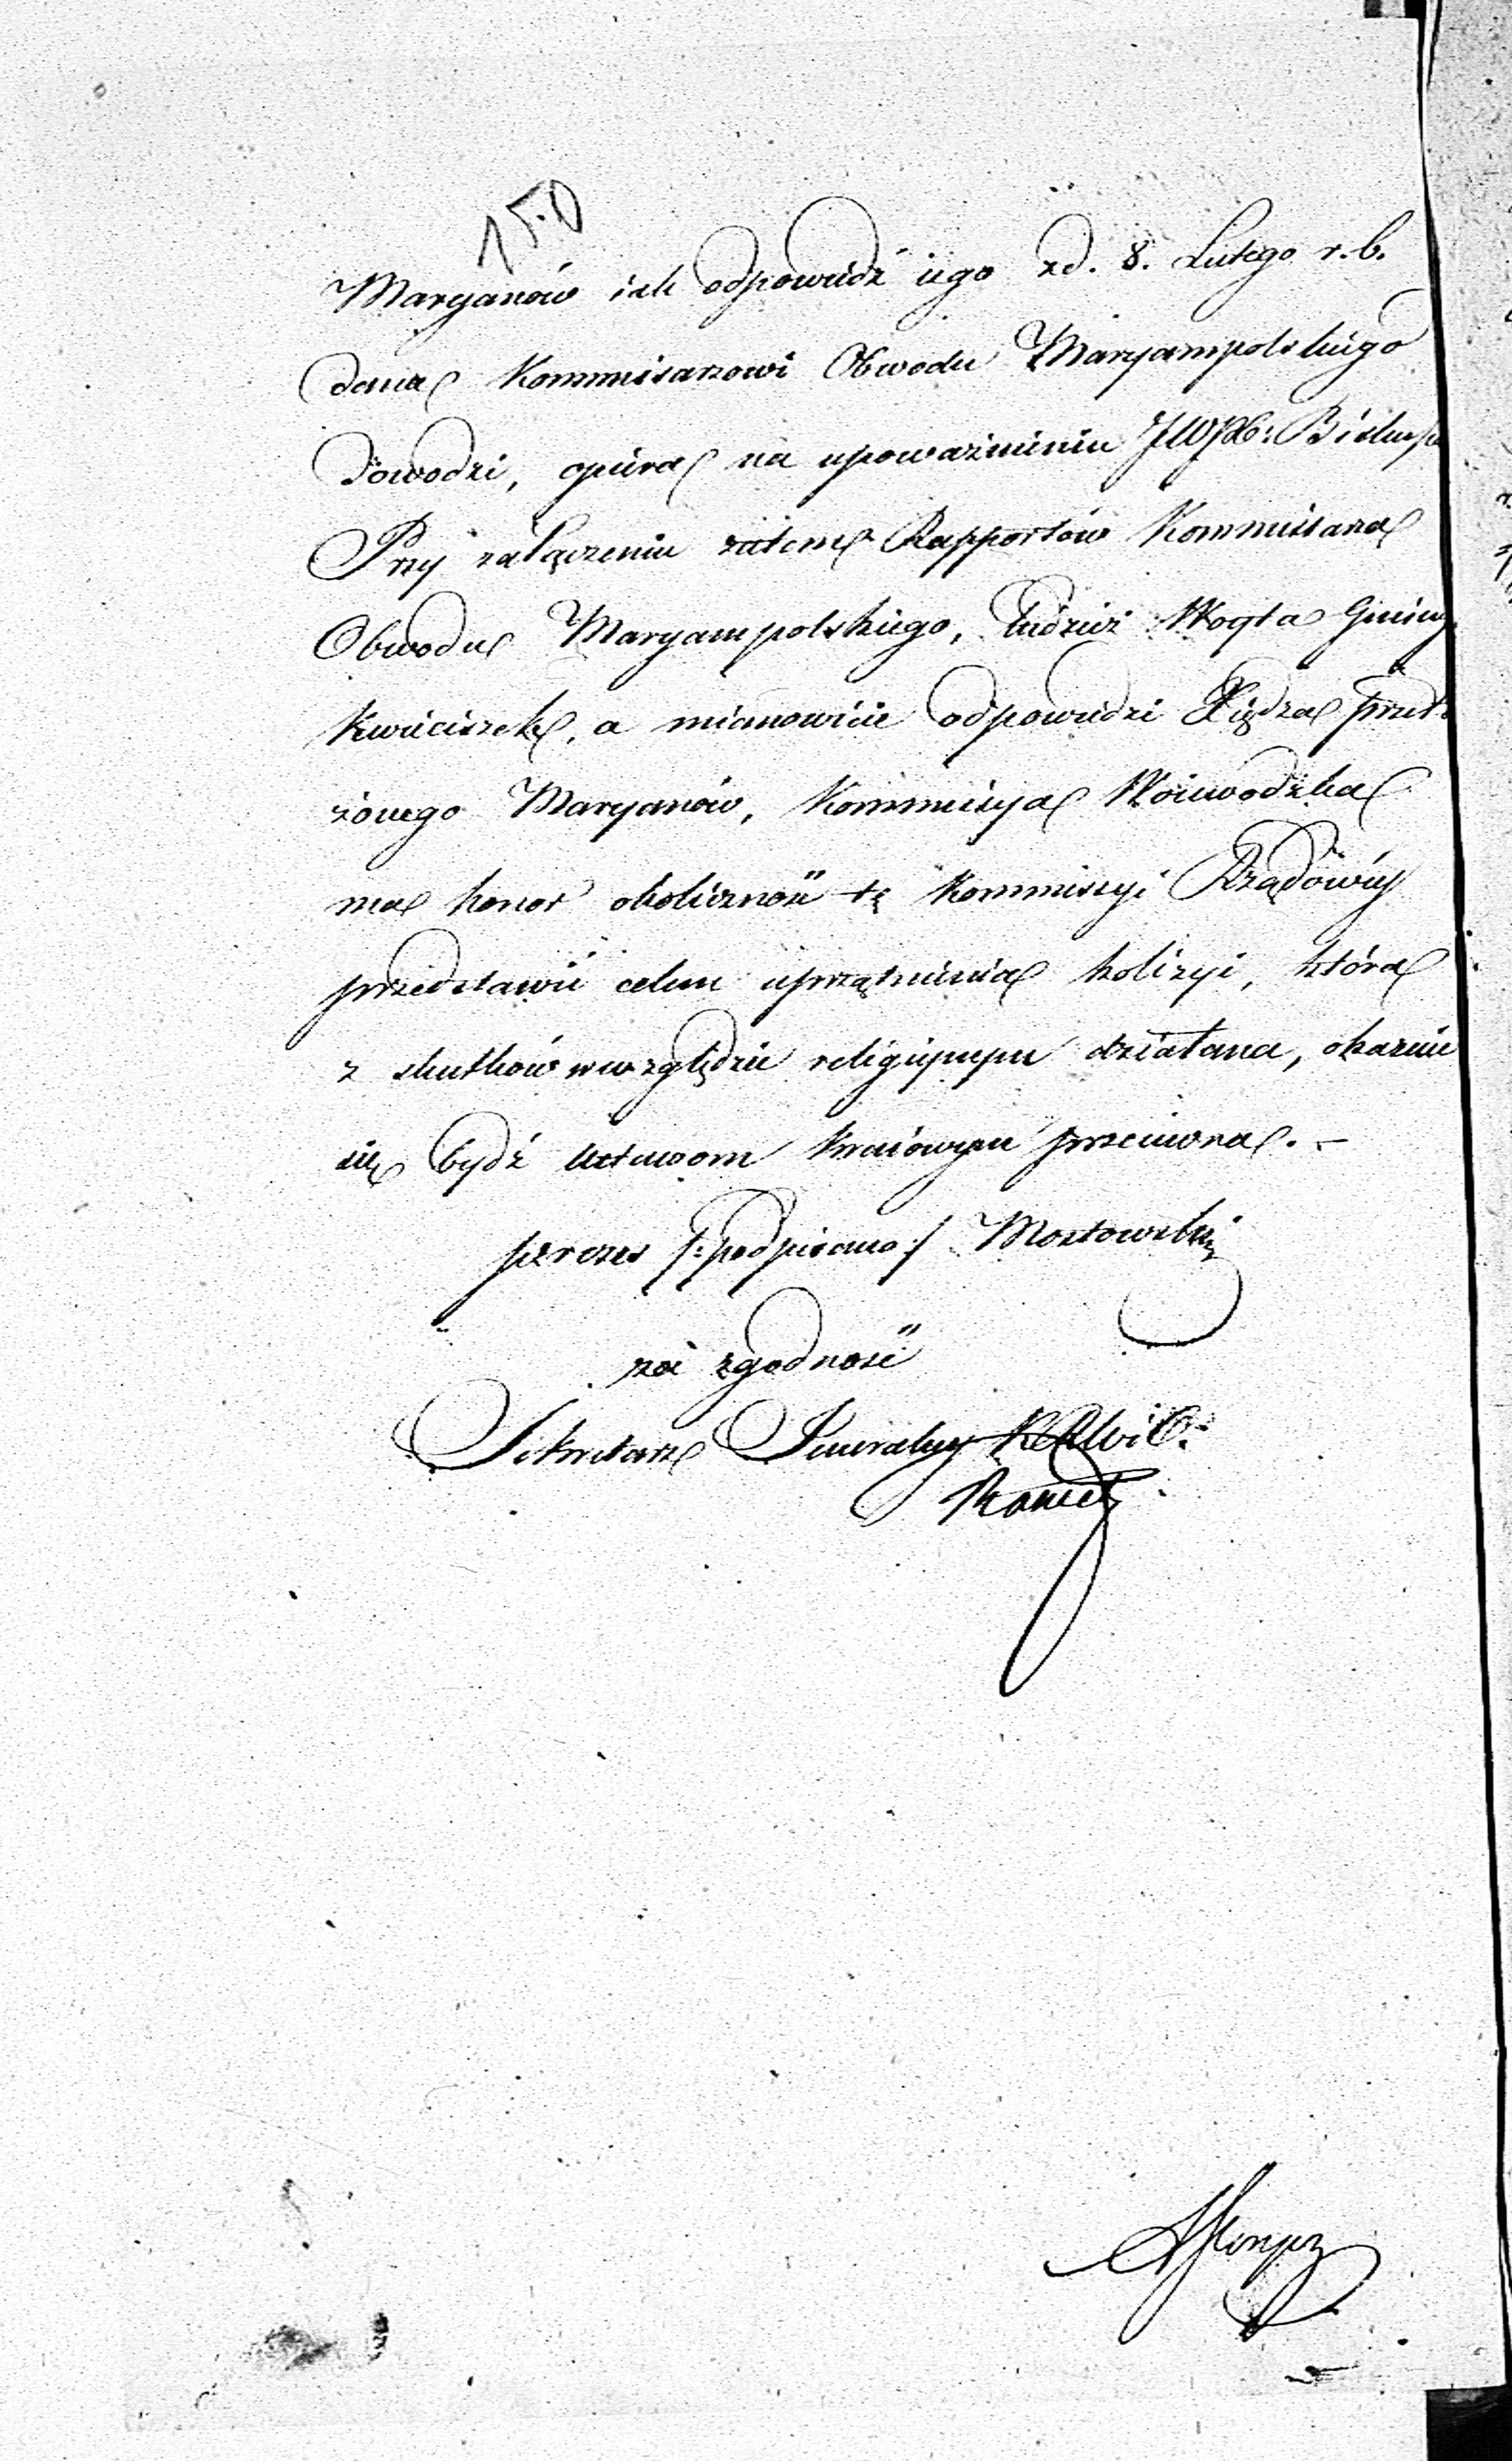 150
Maryanów iak odpowiedź iego zd. 8. Lutego r. b.
dana Kommissarzowi Obwodu Maryampolskiego
dowodzi, opiera na upoważnieniu JWJX: Biskupa
Przy załączeniu zatem Rapportów Kommissarza
Obwodu Maryampolskiego, tudzież Woyta Gminy
Kwieciszek, a mianowicie odpowiedzi Xiędza przeło
żonego Maryanów, Kommissya Woiewodzka
ma honor okoliczność tę Kommissyi Rządowéy
przedstawić celem uprzątnienia kolizyi, która
z skutków w względzie religiynym działana, okazuie
się bydź ustawom kraiowym przeciwna. –
prezes /:podpisano:/ Mostowski
za zgodność
Sekretarz Jeneralny K. R. W. i O.